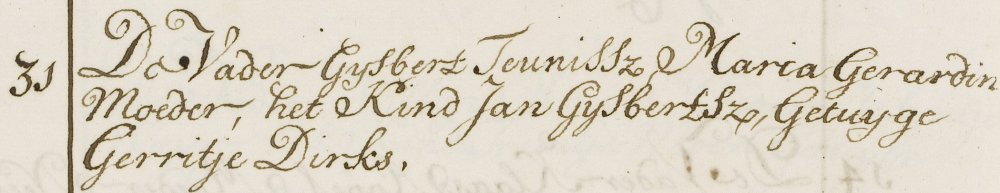 31 De Vader Gysbert Teunissz, Maria Gerardin
Moeder, het Kind Jan Gysbertsz, Getuijge
Gerritje Dirks.